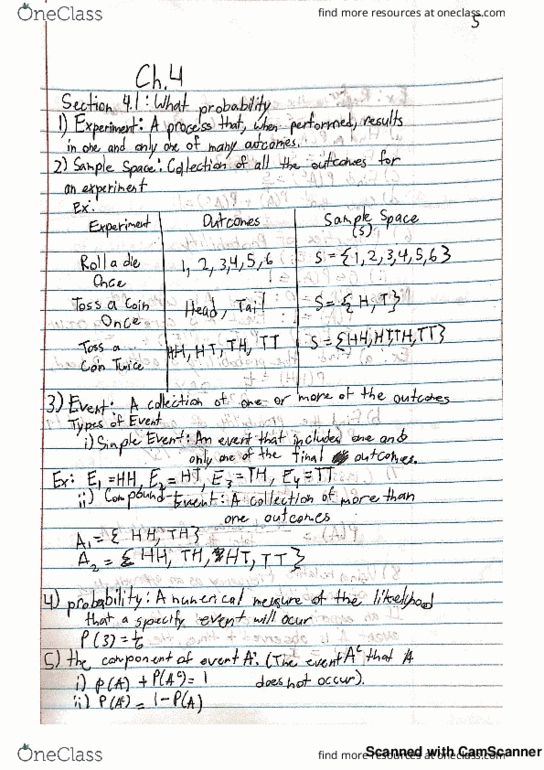 OneClass
find more resources at oneclass.com
5
Ch.4
Section 4.1: What probability
1) Experiment: A process that, when performed, results
in one and only one of many outcomes.
2) Sample Space: Collection of all the outcomes for
an experiment
Ex:
Experiment Outcomes Sample Space (S)
Roll a die Once 1, 2, 3, 4, 5, 6 S = {1, 2, 3, 4, 5, 6}
Toss a Coin Once Head, Tail S = {H, T}
Toss a Coin Twice HH, HT, TH, TT S = {HH, HT, TH, TT}
3) Event: A collection of one or more of the outcomes
Types of Event
i) Simple Event: An event that includes one and
only one of the final outcomes.
Ex: E1 = HH, E2 = HT, E3 = TH, E4 = TT
ii) Compound Event: A collection of more than
one outcomes
A1 = { HH, TH}
A2 = { HH, TH, HT, TT}
4) probability: A numerical measure of the likelihood
that a specify event will occur
P(3) = 1/6
5) the component of event A: (The event Aᶜ that A
does not occur).
i) P(A) + P(Aᶜ) = 1
ii) P(A) = 1 - P(A)
OneClass
find more resources at oneclass.com
Scanned with CamScanner